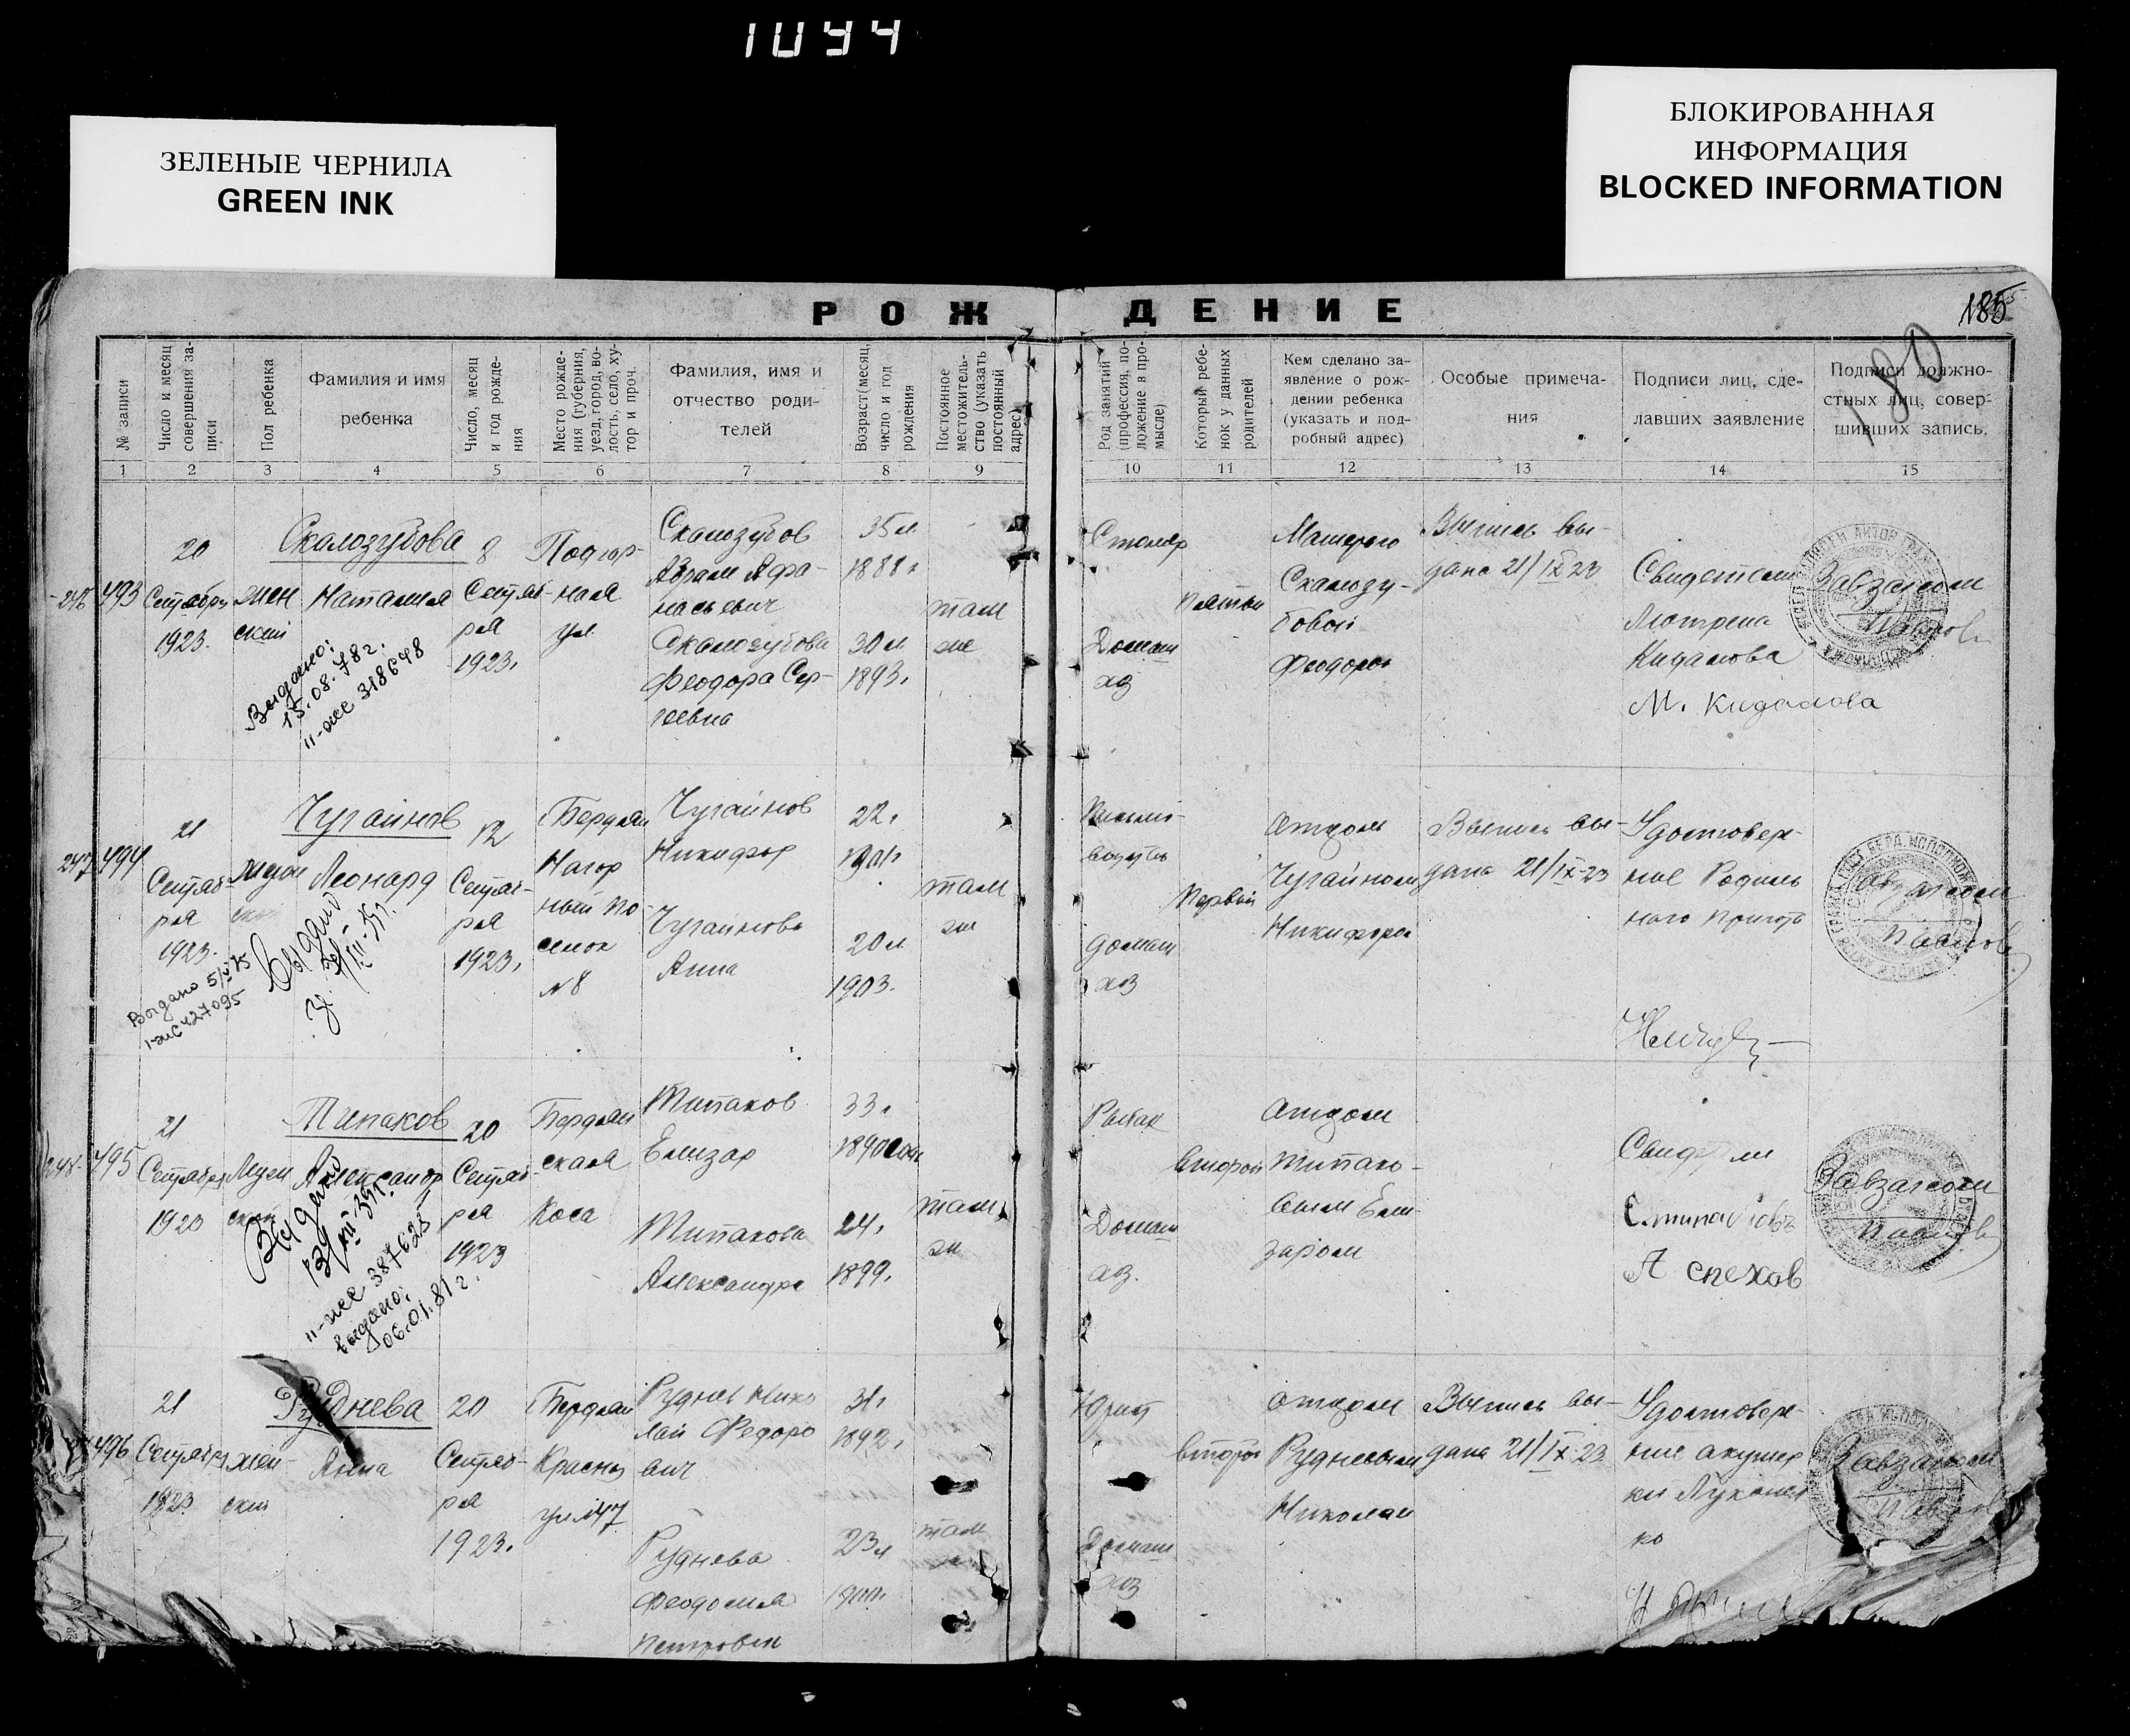 1044
ЗЕЛЕНЫЕ ЧЕРНИЛА
GREEN INK
БЛОКИРОВАННАЯ
ИНФОРМАЦИЯ
BLOCKED INFORMATION
РОЖДЕНИЕ
185
180
№ записи
Число и месяц
совершения за-
писи
Пол ребенка
Фамилия и имя
ребенка
Число, месяц
и год рожде-
ния
Место рожде-
ния (губерния,
уезд, город, во-
лость, село, ху-
тор и проч.
Фамилия, имя и
отчество роди-
телей
Возраст (месяц,
число и год
рождения
Постоянное
местожитель-
ство (указать
постоянный
адрес)
Род занятий
(профессия, по-
ложение в про-
мысле)
Который ребе-
нок у данных
родителей
Кем сделано за-
явление о рож-
дении ребенка
(указать и под-
робный адрес)
Особые примеча-
ния
Подписи лиц, сде-
лавших заявление
Подписи должно-
стных лиц, совер-
шивших запись.
1 2 3 4 5 6 7 8 9 10 11 12 13 14 15
246
493
20
Сентября
1923.
жен
ский
Скалозубова
Наталия
8
Сентяб-
ря
1923.
Подгор-
ная
ул.
Скалозубов
Абрам Афа-
насьевич
Скалозубова
Феодора Сер-
геевна
35 л
1888 г
30 л
1893.
там
же
Столяр
Домаш
хоз
пятый
Матерью
Скалозу-
бовой
Феодорой
Выпись вы-
дана 21/IX 23
Свидетели
Кидалова
М. Кидалова
Завзагсом
Выдано:
15.08.78г.
II-же 318648
247
494
21
Сентяб-
ря
1923.
Чугайнов
Леонард
12
Сентяб-
ря
1923.
Бердян
Нагор
ный по-
селок
№8
Чугайнов
Никифор
Чугайнова
Анна
22.
1901
20 л
1903.
там
же
Первый
домаш
хоз
отцом
Чугайновым
Никифором
Выпись вы-
дана 21/IX-23
Удостовере-
ние Родиль
ного приюта
Завзагсом
Выдано
Выдано 5/V 75
248
495
21
Сентября
1923
Муж
ской
Типаков
Александр
20
Сентяб-
ря
1923
Бердян
ская
Коса
Типаков
Елизар
Типакова
Александра
33.
1890
24.
1899.
там
же
Рыбак
Домаш
хоз.
второй
отцом
Типако-
вым Ели-
заром
Свидетели
А Спехов
Завзагсом
Выдано
II-же 387625
выдано:
06.01.81г.
496
21
Сентября
1923
жен-
ский
Руднева
Анна
20
Сентяб-
ря
1923.
Бердян
Красная
ул. 147
Руднев Нико
лай Федоро
вич
Руднева
Феодосия
Петровна
31.
1892.
23 л
1900.
там
же
Юрист
Домаш
хоз
второй
отцом
Рудневым
Николаем
Выпись вы-
дана 21/IX-23
Удостовере-
ние акушер
ки Лукошен
ко
Завзагсом